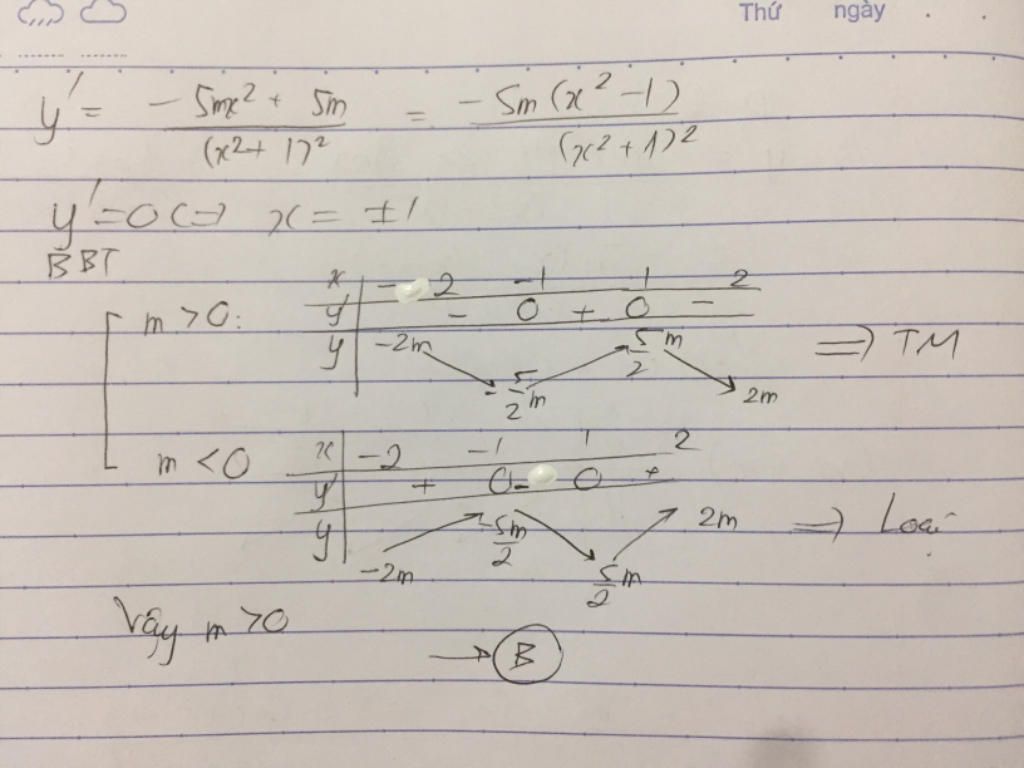 Thứ ngày . .
y' = (-5mx² + 5m)/(x² + 1)² = (-5m(x² - 1))/(x² + 1)²
y' = 0 <=> x = ±1
BBT
x -2 -1 1 2
m > 0: y' - 0 + 0 -
y -2m -5/2 m 5/2 m 2m => TM
m < 0 x -2 -1 1 2
y' + 0 - 0 +
y -2m -5m/2 5/2 m 2m => Loại
Vậy m > 0
→ B